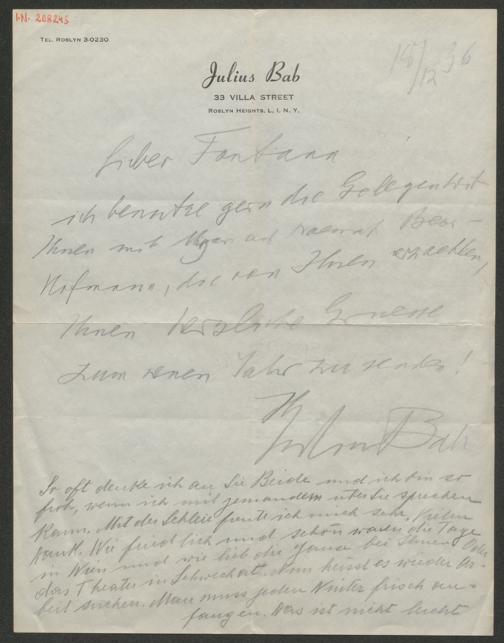 I.N. 208245
TEL. ROSLYN 3-0230
Julius Bab
33 VILLA STREET
ROSLYN HEIGHTS, L. I. N. Y.
Lieber Fontana
ich benutze gern die Gelegenheit
Ihnen mit
Hofmann, die von Ihnen erzaehlen,
Ihnen herzliche Gruesse
zum neuen Jahr zu senden!
Ihr
Julius Bab
So oft denke ich an Sie Beide und ich bin so
froh, wenn ich mit jemandem über Sie sprechen
kann. Mit der Schleie freute ich mich sehr, Vielen
Dank. Wie friedlich und schön waren die Tage
in Wien und wie lieb die bei Ihnen oder
das Theater in Schwechat. Nun heisst es wieder Ar-
beit suchen. Man muss jeden Winter frisch an-
fangen. Das ist nicht leicht